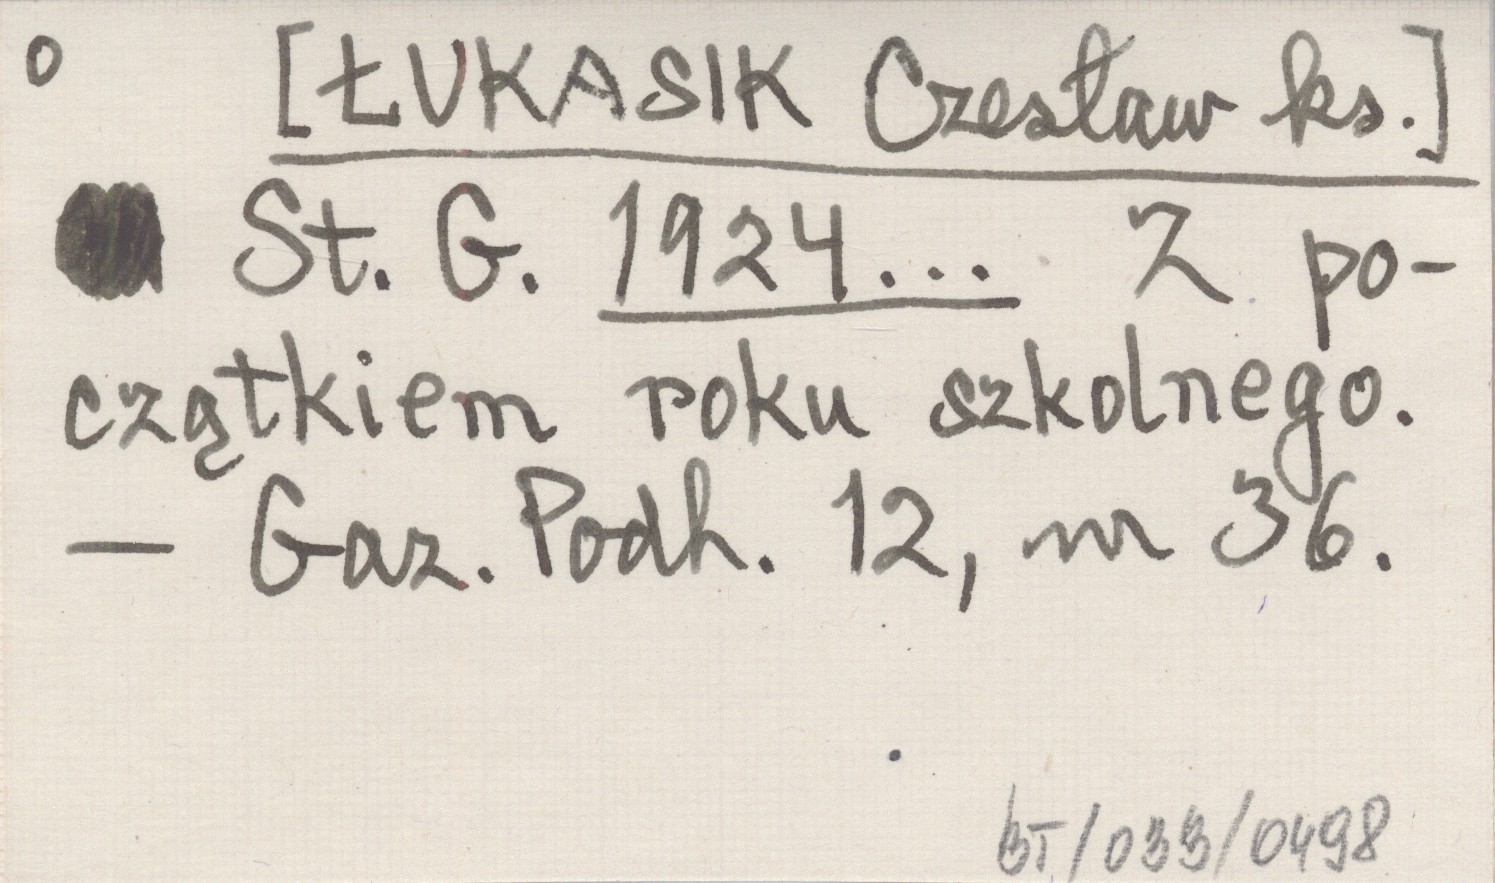 o [ŁUKASIK Czesław ks.]
St. G. 1924... Z po-
czątkiem roku szkolnego.
— Gaz. Podh. 12, nr 36.
BT/033/0498